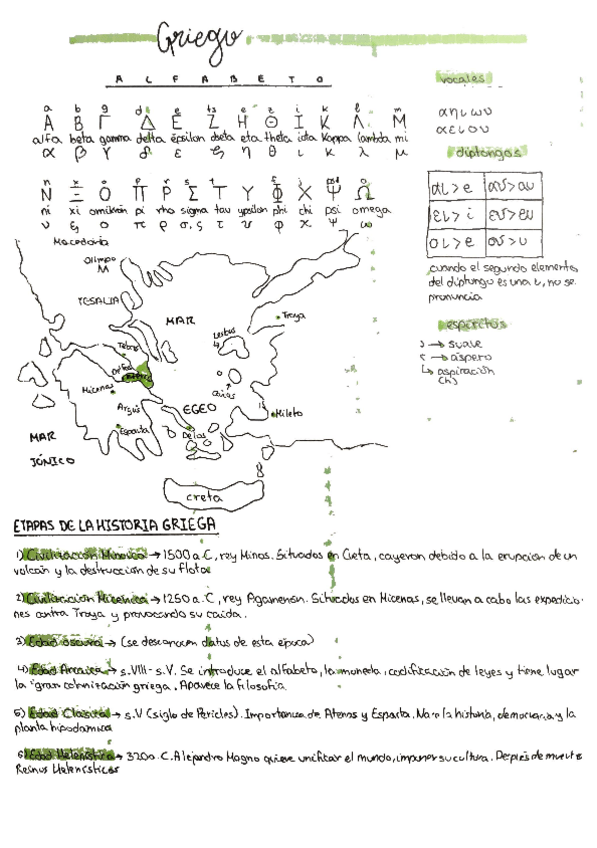 Griego
ALFABETO
a b g d e ts e z i k l m
Α Β Γ Δ Ε Ζ Η Θ Ι Κ Λ Μ
alfa beta gamma delta épsilon dseta eta theta iota kappa lambda mi
α β γ δ ε ζ η θ ι κ λ μ
Ν Ξ Ο Π Ρ Σ Τ Υ Φ Χ Ψ Ω
ni xi omikrón pi rho sigma tau ypsilon phi chi psi omega
ν ξ ο π ρ σ,ς τ υ φ χ ψ ω
vocales
α η ι ω υ
α ε ι ο υ
diptongos
αι > e αυ > au
ει > i ευ > eu
οι > e ου > u
cuando el segundo elemento
del diptongo es una ι, no se
pronuncia
espíritus
→ suave
→ áspero
↳ aspiración
(h)
Macedonia
Olimpo
M
TESALIA
MAR
Troya
Lesbos
Tebas
Micenas
Quíos
Argos
EGEO
Mileto
Esparta
Delos
MAR
JÓNICO
Creta
ETAPAS DE LA HISTORIA GRIEGA
1) Civilización Minoica → 1500 a.C, rey Minos. Situados en Creta, cayeron debido a la erupción de un
volcán y la destrucción de su flota
2) Civilización Micénica → 1250 a.C, rey Agamenón. Situados en Micenas, se llevan a cabo las expedicio-
nes contra Troya y provocando su caída.
3) Edad oscura → (se desconocen datos de esta época)
4) Edad Arcaica → s.VIII - s.V. Se introduce el alfabeto, la moneda, codificación de leyes y tiene lugar
la gran colonización griega. Aparece la filosofía
5) Edad Clásica → s.V (siglo de Pericles). Importancia de Atenas y Esparta. Nace la historia, democracia y la
planta hipodámica
6) Edad Helenística → 320a.C. Alejandro Magno quiere unificar el mundo, imponer su cultura. Después de muerte
Reinos Helenísticos